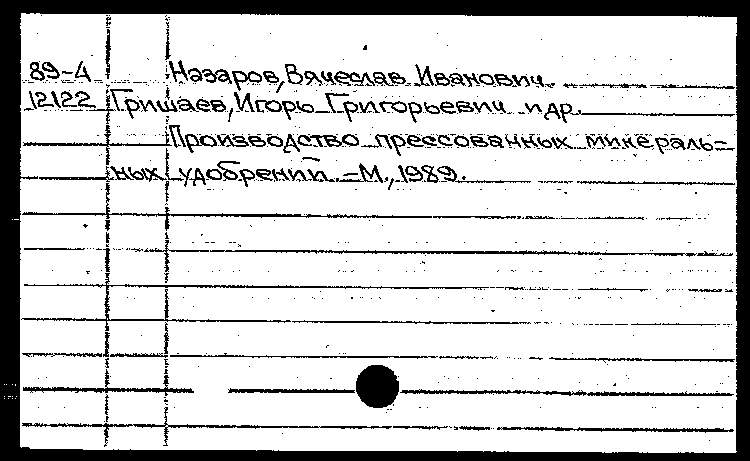 89-4 Назаров, Вячеслав Иванович.
12122 Гришаев, Игорь Григорьевич и др.
Производство прессованных минераль-
ных удобрений. - М., 1989.